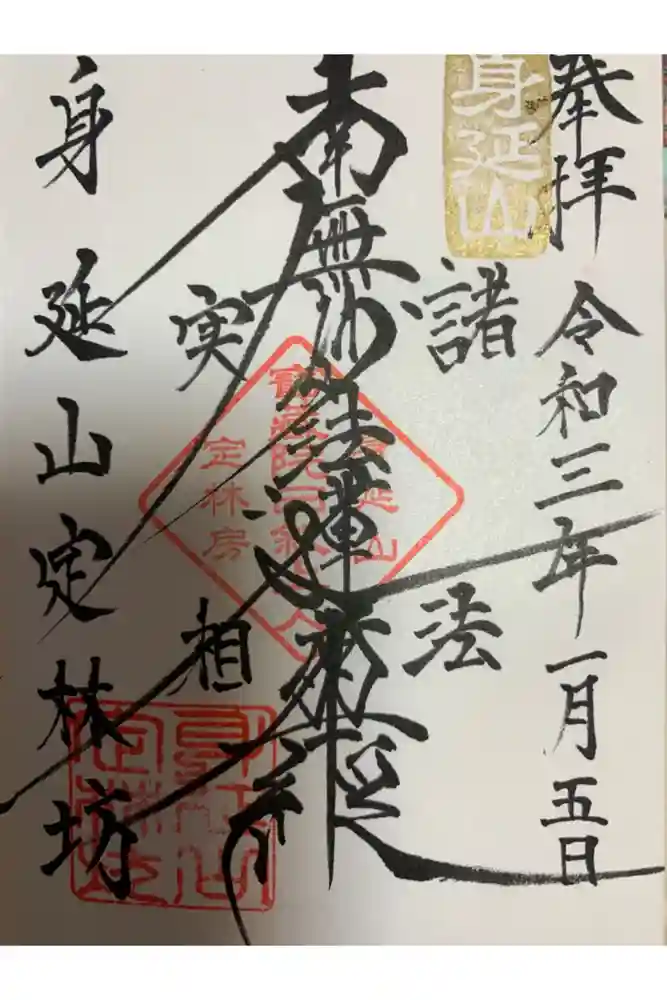 奉拝
令和三年一月五日
身延山
諸法
南無妙法蓮華経
実相
身延山定林坊
身延山
定林房